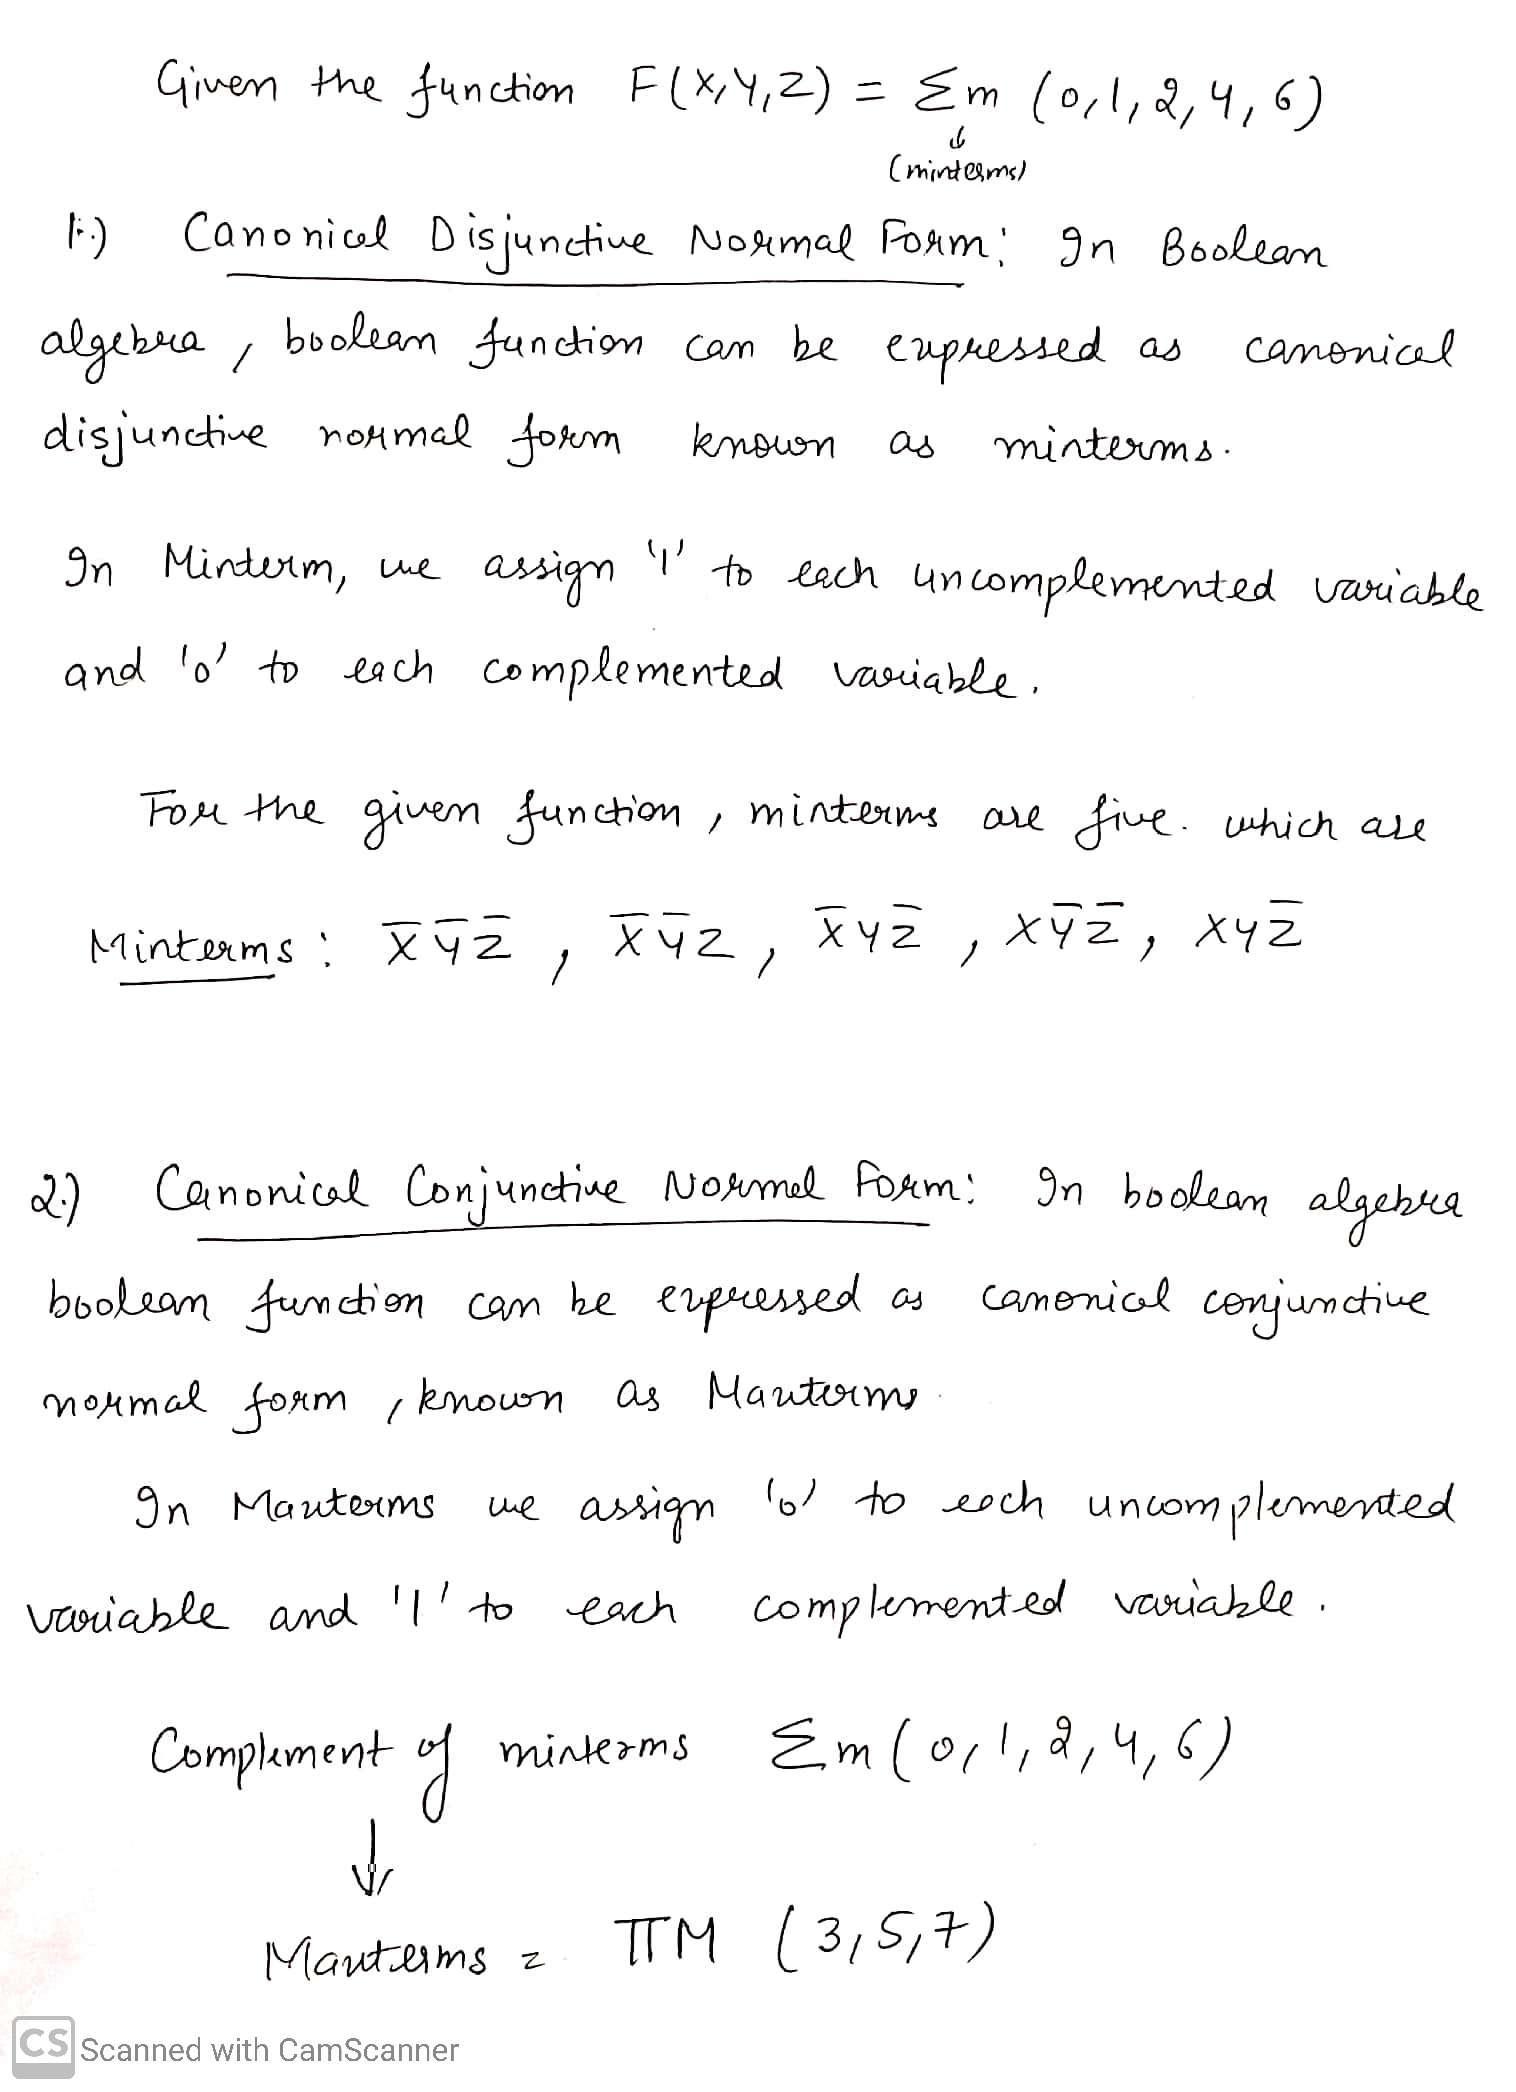 Given the function F(X,Y,Z) = Σm (0,1,2,4,6)
↓
(minterms)
1.) Canonical Disjunctive Normal Form: In Boolean
algebra, boolean function can be expressed as canonical
disjunctive normal form known as minterms.
In Minterm, we assign '1' to each uncomplemented variable
and '0' to each complemented variable.
For the given function, minterms are five. which are
Minterms: X̅Y̅Z̅, X̅Y̅Z, X̅YZ̅, XY̅Z̅, XYZ̅
2.) Canonical Conjunctive Normal Form: In boolean algebra
boolean function can be expressed as canonical conjunctive
normal form, known as Maxterms.
In Maxterms we assign '0' to each uncomplemented
variable and '1' to each complemented variable.
Complement of minterms Σm(0,1,2,4,6)
↓
Maxterms = ΠM (3,5,7)
CS Scanned with CamScanner